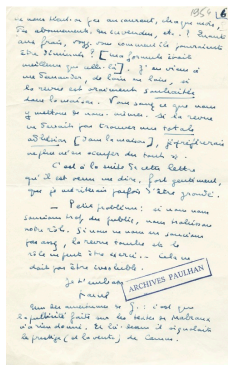 1954 6
ne nous tient-on pas au courant, chaque mois,
des abonnements, des invendus, etc. ? Quant
aux frais, voyez-vous comment ils pourraient
être diminués ? [nos formats était
meilleur que celui-ci]. J'en viens à
me demander, de loin en loin, si
la revue est vraiment souhaitée
dans la maison. Vous savez ce que nous
y mettons de nous-mêmes. Si la revue
ne devait pas trouver une totale
adhésion [dans la maison], je préférerais
ne plus m'en occuper du tout.
C'est à la suite de cette lettre
qu'il est venu me dire, fort gentiment,
que je méritais parfois d'être grondé.
— Petit problème : si nous nous
soucions trop du public, nous trahissons
notre rôle. Si nous ne nous en soucions
pas assez, la revue tombe et le
rôle ne peut être exercé. — Cela ne
doit pas être insoluble.
Je t'embrasse
Marcel
ARCHIVES PAULHAN
Une des assertions de G. : c'est que
la publicité faite sur les textes de Malraux
n'a rien donné. Et là-dessus il signalait
le prestige (et la vente) de Camus.